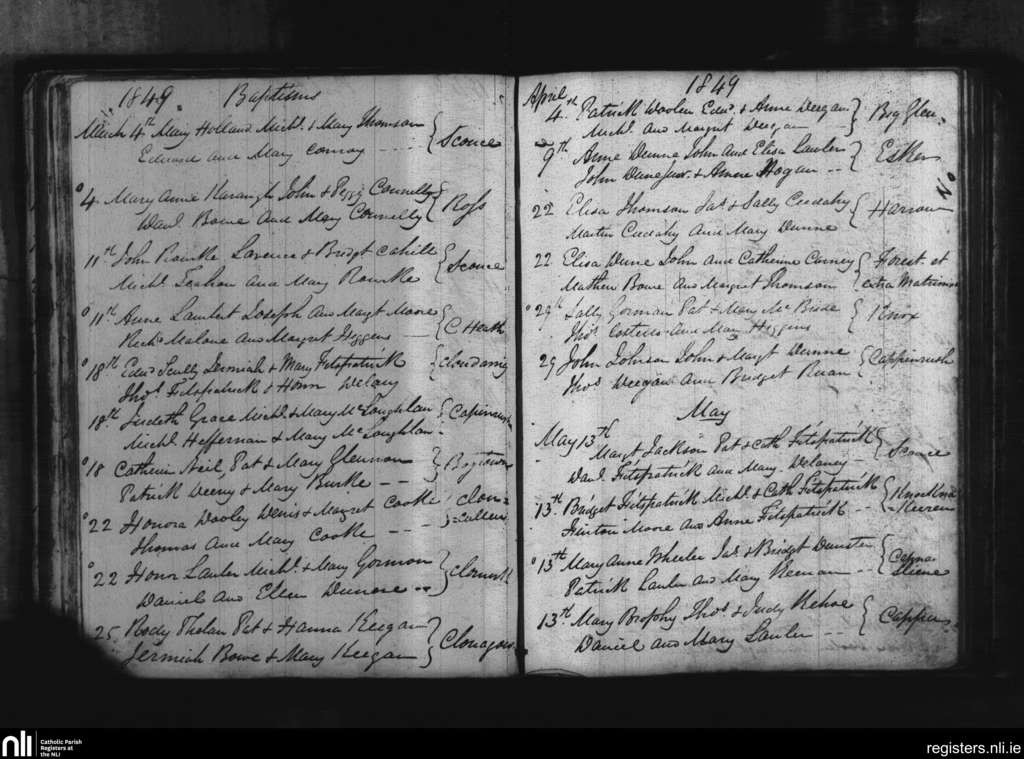 1849. Baptisms
March 4th Mary Holland Michl. & Mary Thomson
Edward and Mary Conroy - - - - { Sconce
4. Mary Anne Kavangh John & Peggy Connelly
Danl. Bowe and Mary Connelly { Ross
11th John Rourke Lavence & Bridgt Cahill
Michl. and Mary Rourke { Sconce
11th Anne Lambert Joseph and Margt Moore
Richd. Malone and Margret Higgens { C. Heath
18th Edwd Scully Jermiah & Mary Fitzpatrick
Thos Fitzpatrick & Honor Delany
18th Judeth Grace Michl. & Mary McLoughlan
Michl. Heffernan & Mary McLoughlan
18 Cathein Neil, Pat & Mary Glennon
Patrick & Mary Burke - -
22 Honora Dooley Denis & Margret Cooke
Thomas and Mary Cooke - - -
22 Honor Lauler Michl. & Mary Gormon
Daniel and Ellen
25 Body Phelan Pat & Hanna Keegan
Jermiah Bowe & Mary Keegan
1849
April
4th Patrick Edwd & Anne Deegan
Michl. and Margret Deegan
9th Anne Dunne John and Elisa Lauler
John Dune Junr. & Hogan - - } Esker
22 Elisa Thomson Jas & Sally Cuddahy
Martin Cuddahy and Mary Dunne { Harrow
22. Elisa Dune John and Catherine Carney { Forest et
Mathew Bowe and Margret Thomson extra Matrimon
29th Sally Gorman Pat & Mary McBride
Thos Costello and Mary Higgins { Knox
29 John Johnson John & Margt Dunne
Thos Deegan and Bridget Ruan { Cappinrush
May
May 13th Margt Jackson Pat & Cath Fitzpatrick
Danl. Fitzpatrick and Mary Delaney - { Sconce
13th Bridget Fitzpatrick Michl. & Cath Fitzpatrick
Finton Moore and Anne Fitzpatrick - -
13th Mary Anne Wheeler Jas & Bridget
Patrick Lauler and Mary Keenan - -
13th Mary Brophy Thos & Judy Kehoe
Daniel and Mary Lauler - -
nli Catholic Parish
Registers at
the NLI
registers.nli.ie